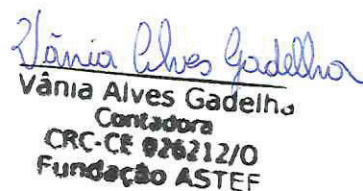 Vânia Alves Gadelha
Vânia Alves Gadelha
Contadora
CRC-CE 026212/O
Fundação ASTEF